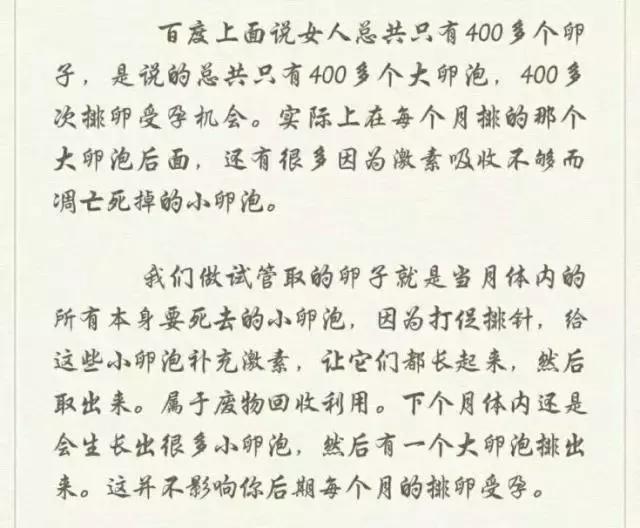 百度上面说女人总共只有400多个卵
子，是说的总共只有400多个大卵泡，400多
次排卵受孕机会。实际上在每个月排的那个
大卵泡后面，还有很多因为激素吸收不够而
凋亡死掉的小卵泡。
我们做试管取的卵子就是当月体内的
所有本身要死去的小卵泡，因为打促排针，给
这些小卵泡补充激素，让它们都长起来，然后
取出来。属于废物回收利用。下个月体内还是
会生长出很多小卵泡，然后有一个大卵泡排出
来。这并不影响你后期每个月的排卵受孕。